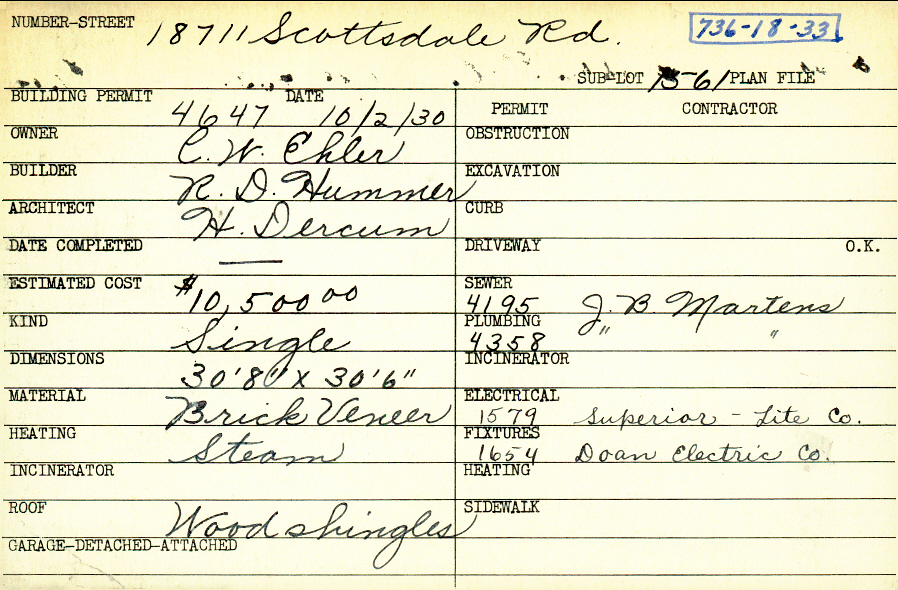 NUMBER-STREET 18711 Scottsdale Rd. 736-18-33
SUB-LOT 1561 PLAN FILE
BUILDING PERMIT 4647 DATE 10/2/30
PERMIT CONTRACTOR
OWNER C. W. Ehler
OBSTRUCTION
BUILDER R. D. Hummer
EXCAVATION
ARCHITECT H. Dercum
CURB
DATE COMPLETED —
DRIVEWAY O.K.
ESTIMATED COST $10,500 00
SEWER 4195 J. B. Martens
KIND Single
PLUMBING 4358 " "
DIMENSIONS 30'8" X 30'6"
INCINERATOR
MATERIAL Brick Veneer
ELECTRICAL 1579 Superior - Lite Co.
HEATING Steam
FIXTURES 1654 Doan Electric Co.
INCINERATOR
HEATING
ROOF Wood shingles
SIDEWALK
GARAGE-DETACHED-ATTACHED